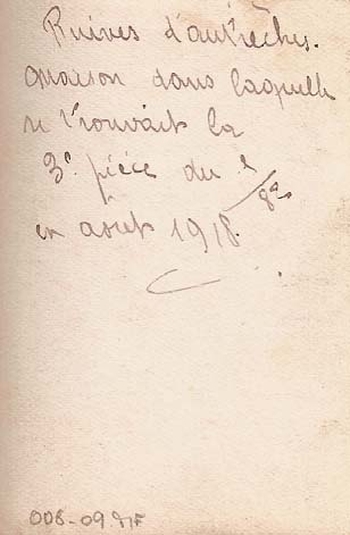 Ruines d'autrèches.
maison dans laquelle
se trouvait la
3e pièce du
en aout 1918.
008-09